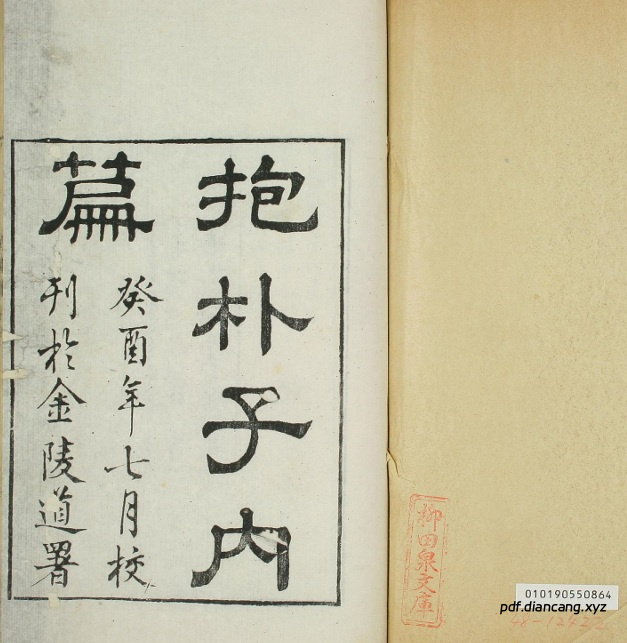 抱朴子内
篇
癸酉年七月校
刊於金陵道署
柳田泉文庫
010190550864
pdf.diancang.xyz